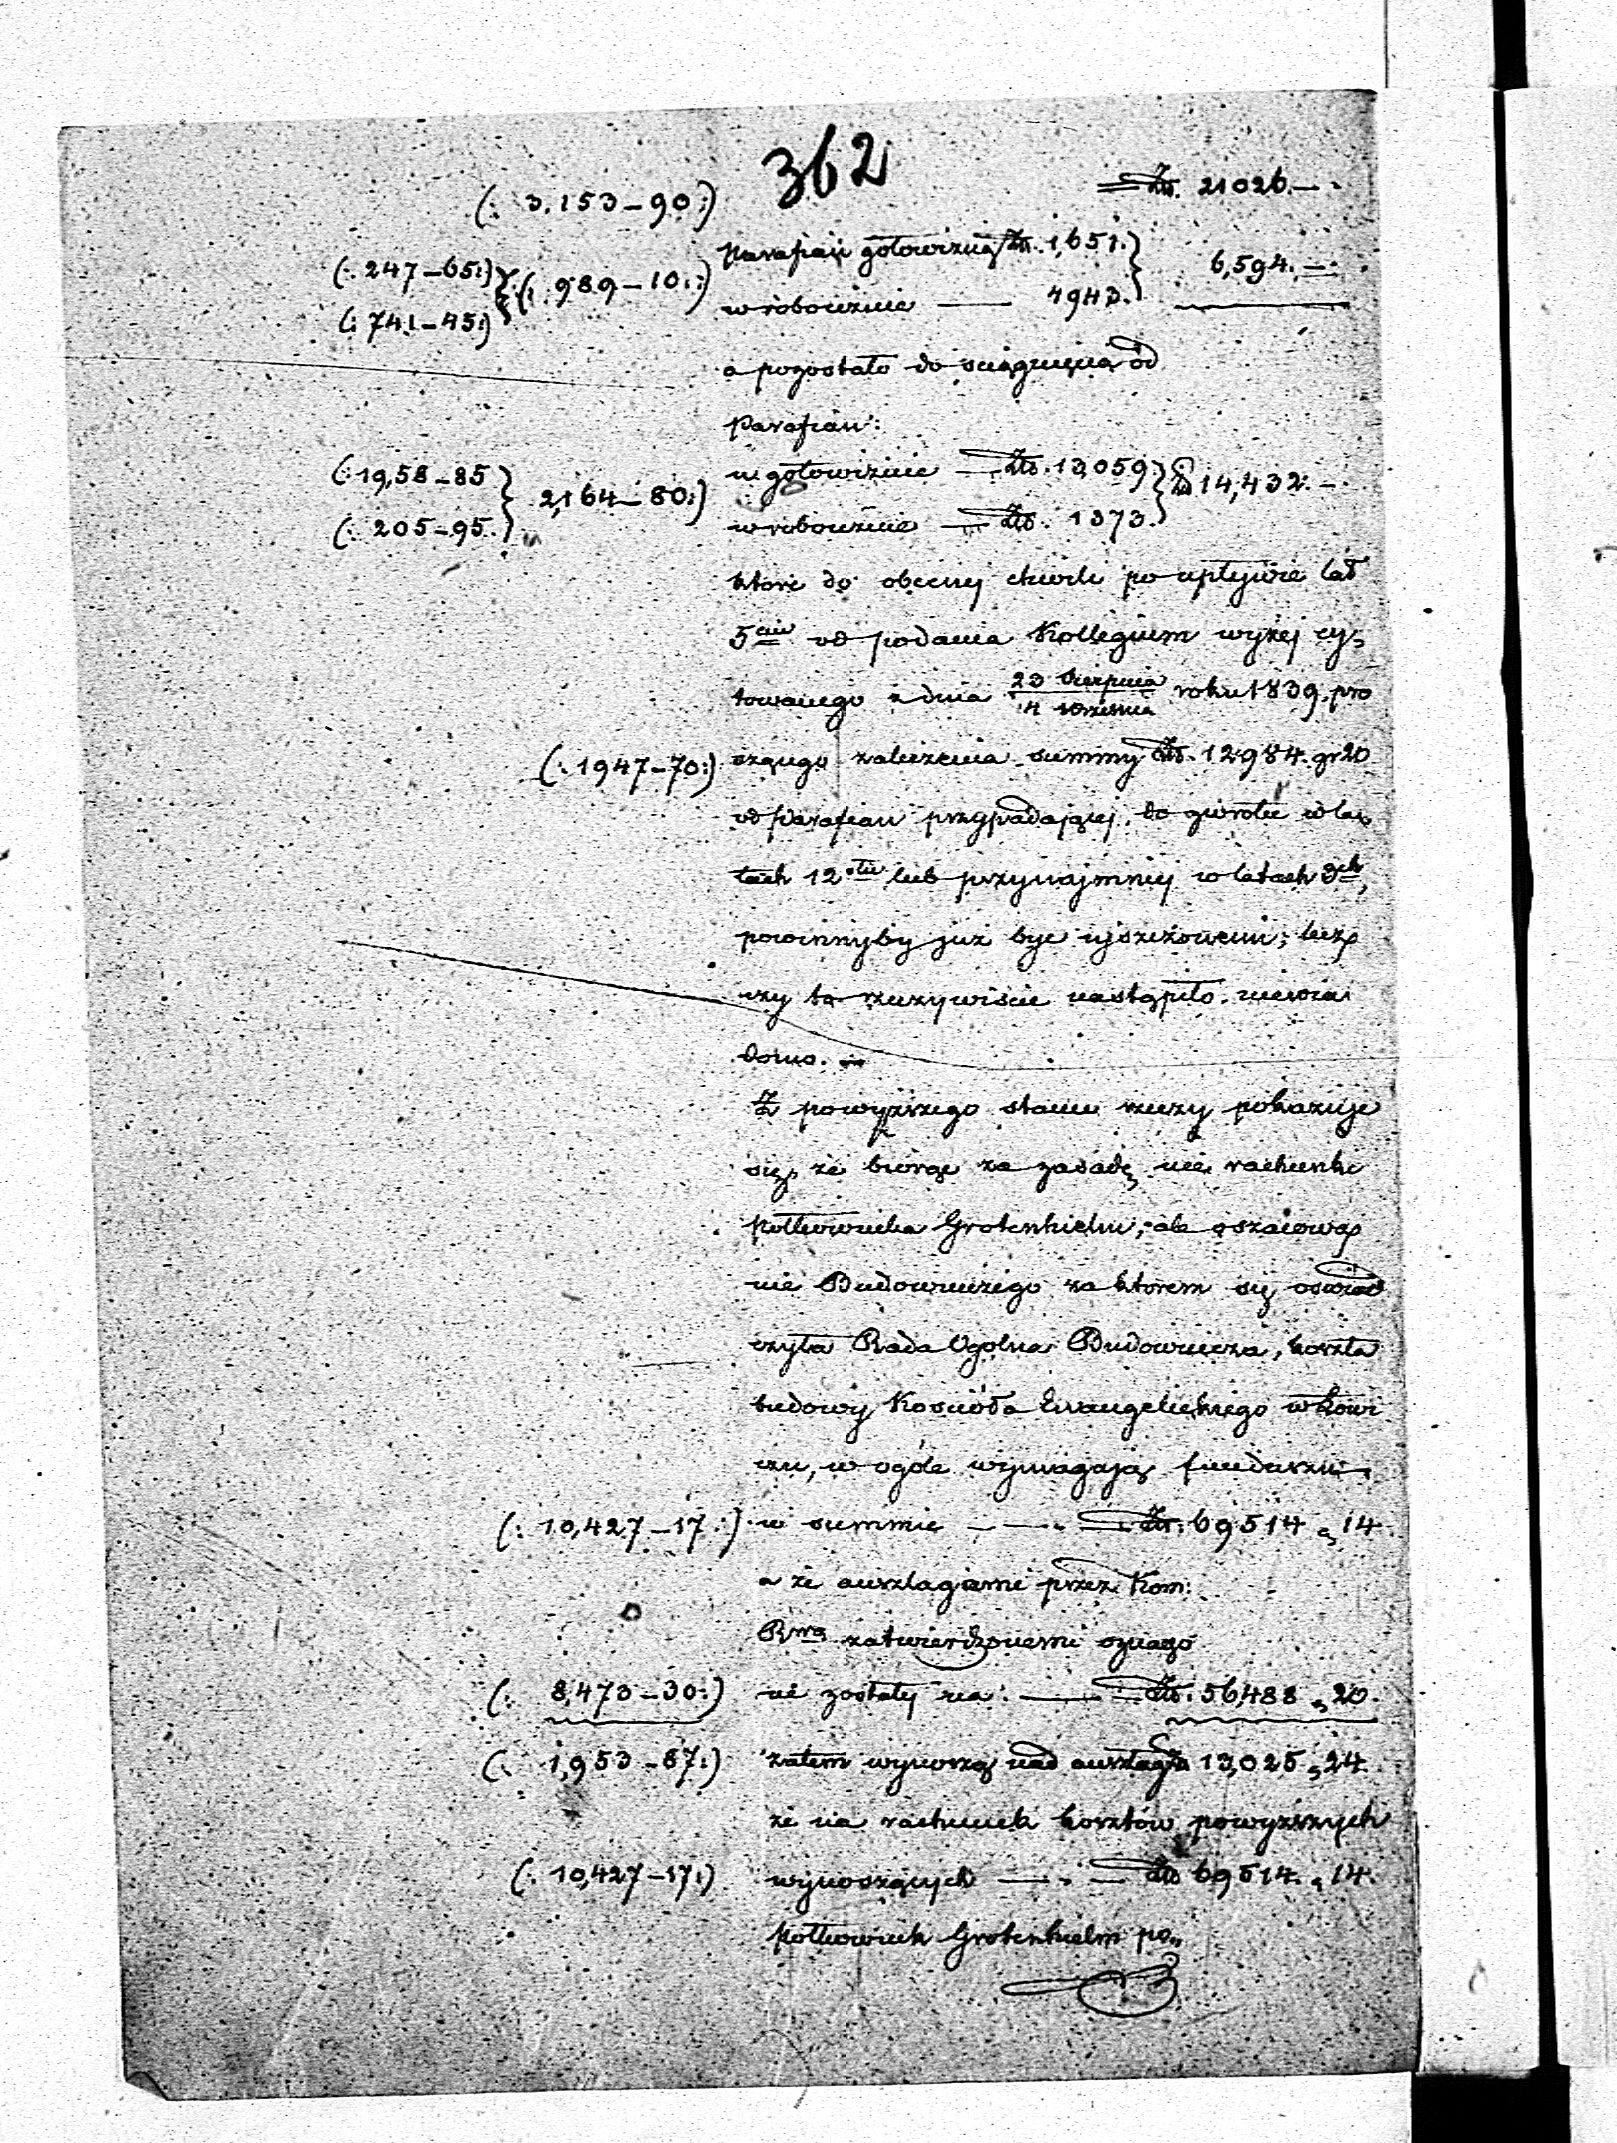 362
(: 3.153–90:) Złt. 21026.–.
(: 247–65:) (: 989–10:) Parafian gotowizną Złt. 1,651. 6,594.–.
(: 741–45:) w robociznie — 4943.
a pozostało do sciągnięcia od
Parafian:
(: 19,58–85 2,164–80:) w gotowiznie — Złt. 13,059 Złt 14,432.–.
(: 205–95. w robociznie — Złt. 1373.
które do obecnej chwili po upływie lat
5ciu od podania Kollegium wyżej cy„
towanego z dnia 23 Sierpnia / 4 Września roku 1839, pro
(: 1947–70:) szącego zaliczenia summy Złt. 12984. gr 20
od Parafian przypadającej, do zwrotu w la„
tach 12tu lub przynajmniej w latach 3ch,
powinnyby już być uiszczonemi; lecz
czy to rzeczywiście nastąpiło. niewia
domo. –
Z powyższego stanu rzeczy pokazuje
się, że biorąc za zasadę nie rachunki
Półkownika Grotenhielm, ale oszacowa
nie Budowniczego za ktorem się oswiad
czyła Rada Ogolna Budownicza, koszta
budowy Kościoła Ewangelickiego w Łowi
czu, w ogóle wymagają funduszu
(: 10,427–17:) w summie — — Złt. 69514 „ 14.
a że anszlagiami przez Kom:
Rwą zatwierdzonemi oznaczo
(: 8,473–30:) ne zostały na: — Złt. 56,488 „ 20.
(: 1,953–87:) zatem wynoszą nad anszlag Złt 13,025 „ 24.
że na rachunek kosztów powyższych
(: 10,427–17:) wynoszących — . — Złt 69514. „ 14.
Półkownik Grotenhielm po„